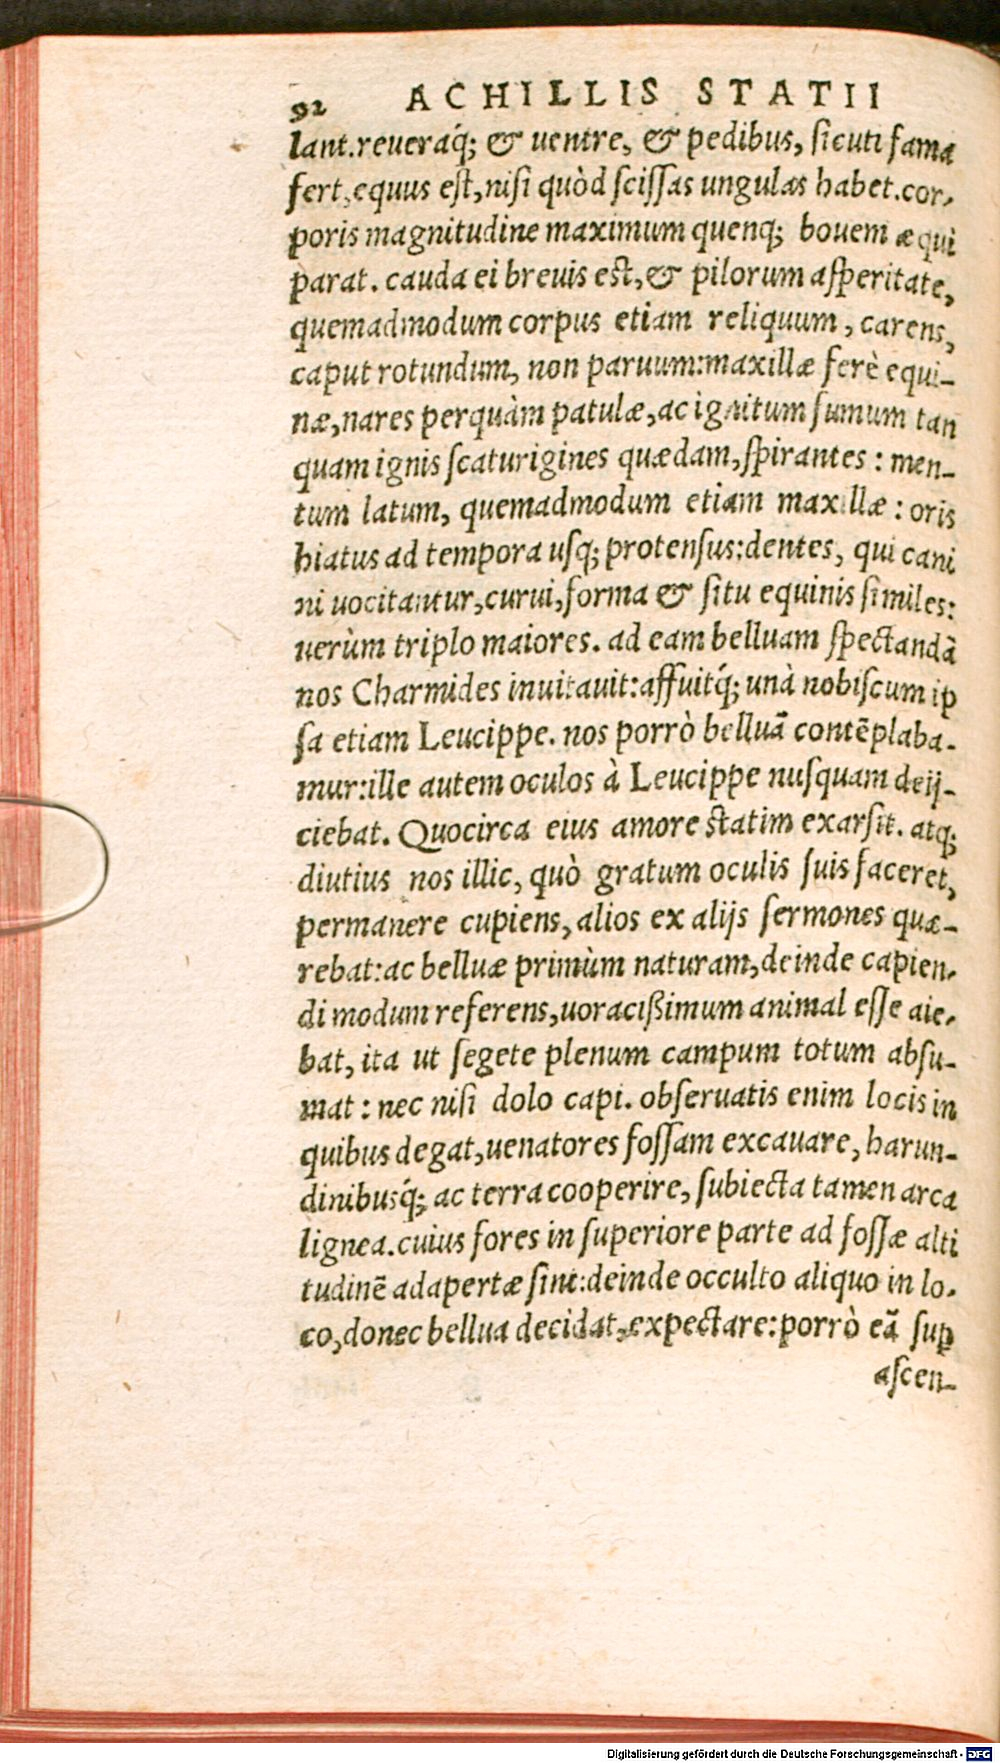 92 ACHILLIS STATII
lant. reueraq́; & uentre, & pedibus, sicuti fama
fert, equus est, nisi quòd scissas ungulas habet. cor-
poris magnitudine maximum quenq; bouem æqui
parat. cauda ei breuis est, & pilorum asperitate,
quemadmodum corpus etiam reliquum, carens,
caput rotundum, non paruum: maxillæ ferè equi-
næ, nares perquàm patulæ, ac ignitum fumum tan
quam ignis scaturigines quædam, spirantes: men-
tum latum, quemadmodum etiam maxillæ: oris
hiatus ad tempora usq; protensus: dentes, qui cani
ni uocitantur, curui, forma & situ equinis similes:
uerùm triplo maiores. ad eam belluam spectandã
nos Charmides inuitauit: affuitq́; unà nobiscum ip
sa etiam Leucippe. nos porrò belluã contẽplaba-
mur: ille autem oculos à Leucippe nusquam deij-
ciebat. Quocirca eius amore statim exarsit. atq;
diutius nos illic, quò gratum oculis suis faceret,
permanere cupiens, alios ex alijs sermones quæ-
rebat: ac belluæ primùm naturam, deinde capien-
di modum referens, uoracißimum animal esse aie-
bat, ita ut segete plenum campum totum absu-
mat: nec nisi dolo capi. obseruatis enim locis in
quibus degat, uenatores fossam excauare, harun-
dinibusq́; ac terra cooperire, subiecta tamen arca
lignea. cuius fores in superiore parte ad fossæ alti
tudinẽ adapertæ sint: deinde occulto aliquo in lo-
co, donec bellua decidat, expectare: porrò eã sup
ascen-
Digitalisierung gefördert durch die Deutsche Forschungsgemeinschaft - DFG